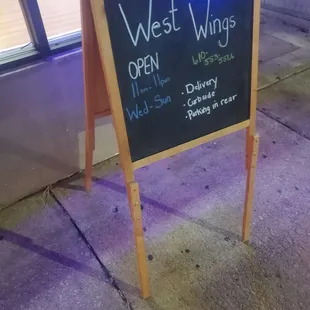 West Wings
OPEN
11am-11pm
Wed-Sun
610-
• Delivery
• Curbside
• Parking in rear